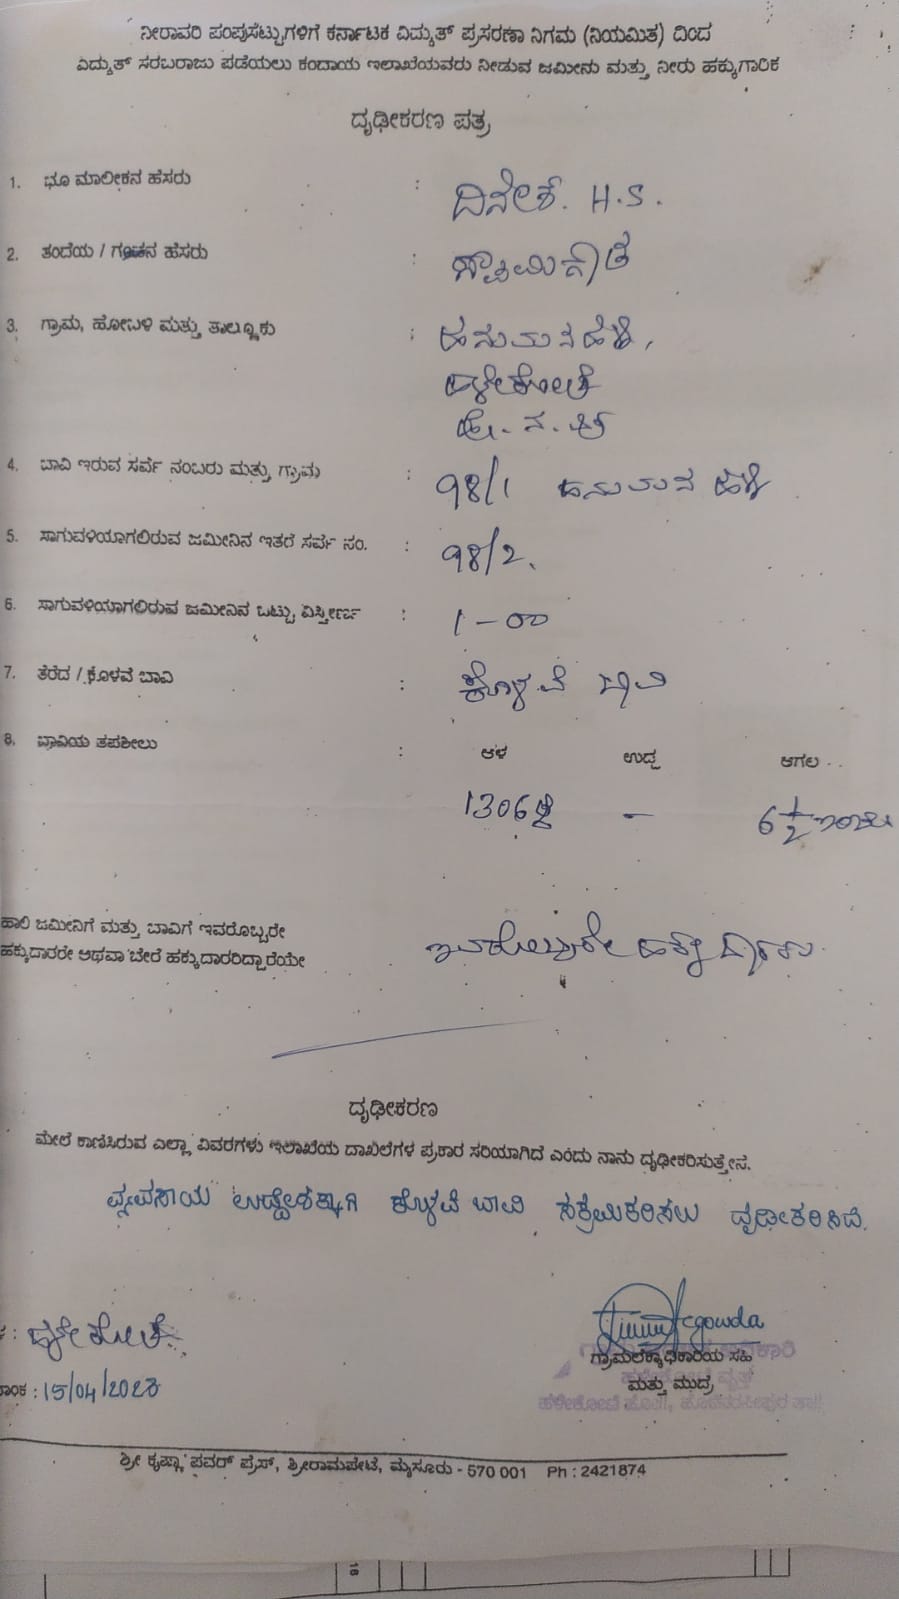 ನೀರಾವರಿ ಪಂಪುಸೆಟ್ಟುಗಳಿಗೆ ಕರ್ನಾಟಕ ವಿದ್ಯುತ್ ಪ್ರಸರಣಾ ನಿಗಮ (ನಿಯಮಿತ) ದಿಂದ
ವಿದ್ಯುತ್ ಸರಬರಾಜು ಪಡೆಯಲು ಕಂದಾಯ ಇಲಾಖೆಯವರು ನೀಡುವ ಜಮೀನು ಮತ್ತು ನೀರು ಹಕ್ಕುಗಾರಿಕೆ
ದೃಢೀಕರಣ ಪತ್ರ
1. ಭೂ ಮಾಲೀಕನ ಹೆಸರು : ದಿನೇಶ್. H.S.
2. ತಂದೆಯ / ಗಂಡನ ಹೆಸರು : ಸ್ವಾಮಿಗೌಡ
3. ಗ್ರಾಮ, ಹೋಬಳಿ ಮತ್ತು ತಾಲ್ಲೂಕು : ಹನುಮನಹಳ್ಳಿ,
ಹಳೇಕೋಟೆ
ಹೊ. ನ. ಪುರ
4. ಬಾವಿ ಇರುವ ಸರ್ವೆ ನಂಬರು ಮತ್ತು ಗ್ರಾಮ : 98/1 ಹನುಮನ ಹಳ್ಳಿ
5. ಸಾಗುವಳಿಯಾಗಲಿರುವ ಜಮೀನಿನ ಇತರೆ ಸರ್ವೆ ನಂ. : 98/2.
6. ಸಾಗುವಳಿಯಾಗಲಿರುವ ಜಮೀನಿನ ಒಟ್ಟು ವಿಸ್ತೀರ್ಣ : 1-00
7. ತೆರೆದ / ಕೊಳವೆ ಬಾವಿ : ಕೊಳವೆ ಬಾವಿ
8. ಬಾವಿಯ ತಪಶೀಲು : ಆಳ ಉದ್ದ ಅಗಲ
1306 – 6 1/2 ಇಂಚು
ಹಾಲಿ ಜಮೀನಿಗೆ ಮತ್ತು ಬಾವಿಗೆ ಇವರೊಬ್ಬರೇ
ಹಕ್ಕುದಾರರೇ ಅಥವಾ ಬೇರೆ ಹಕ್ಕುದಾರರಿದ್ದಾರೆಯೇ ಇವರೊಬ್ಬರೇ ಹಕ್ಕುದಾರರು
ದೃಢೀಕರಣ
ಮೇಲೆ ಕಾಣಿಸಿರುವ ಎಲ್ಲಾ ವಿವರಗಳು ಇಲಾಖೆಯ ದಾಖಲೆಗಳ ಪ್ರಕಾರ ಸರಿಯಾಗಿದೆ ಎಂದು ನಾನು ದೃಢೀಕರಿಸುತ್ತೇನೆ.
ವ್ಯವಸಾಯ ಉದ್ದೇಶಕ್ಕಾಗಿ ಕೊಳವೆ ಬಾವಿ ಸಕ್ರಮಿಕರಿಸಲು ದೃಢೀಕರಿಸಿದೆ.
: ಹಳೇಕೋಟೆ
: 15/04/2023
ಗ್ರಾಮಲೆಕ್ಕಾಧಿಕಾರಿಯ ಸಹಿ
ಮತ್ತು ಮುದ್ರೆ
ಹಳೇಕೋಟೆ ವೃತ್ತ
ಹಳೇಕೋಟೆ ಹೋ||, ಹೊಳೆನರಸೀಪುರ ತಾ||
ಶ್ರೀ ಕೃಷ್ಣಾ ಪವರ್ ಪ್ರೆಸ್, ಶ್ರೀರಾಮಪೇಟೆ, ಮೈಸೂರು - 570 001 Ph : 2421874